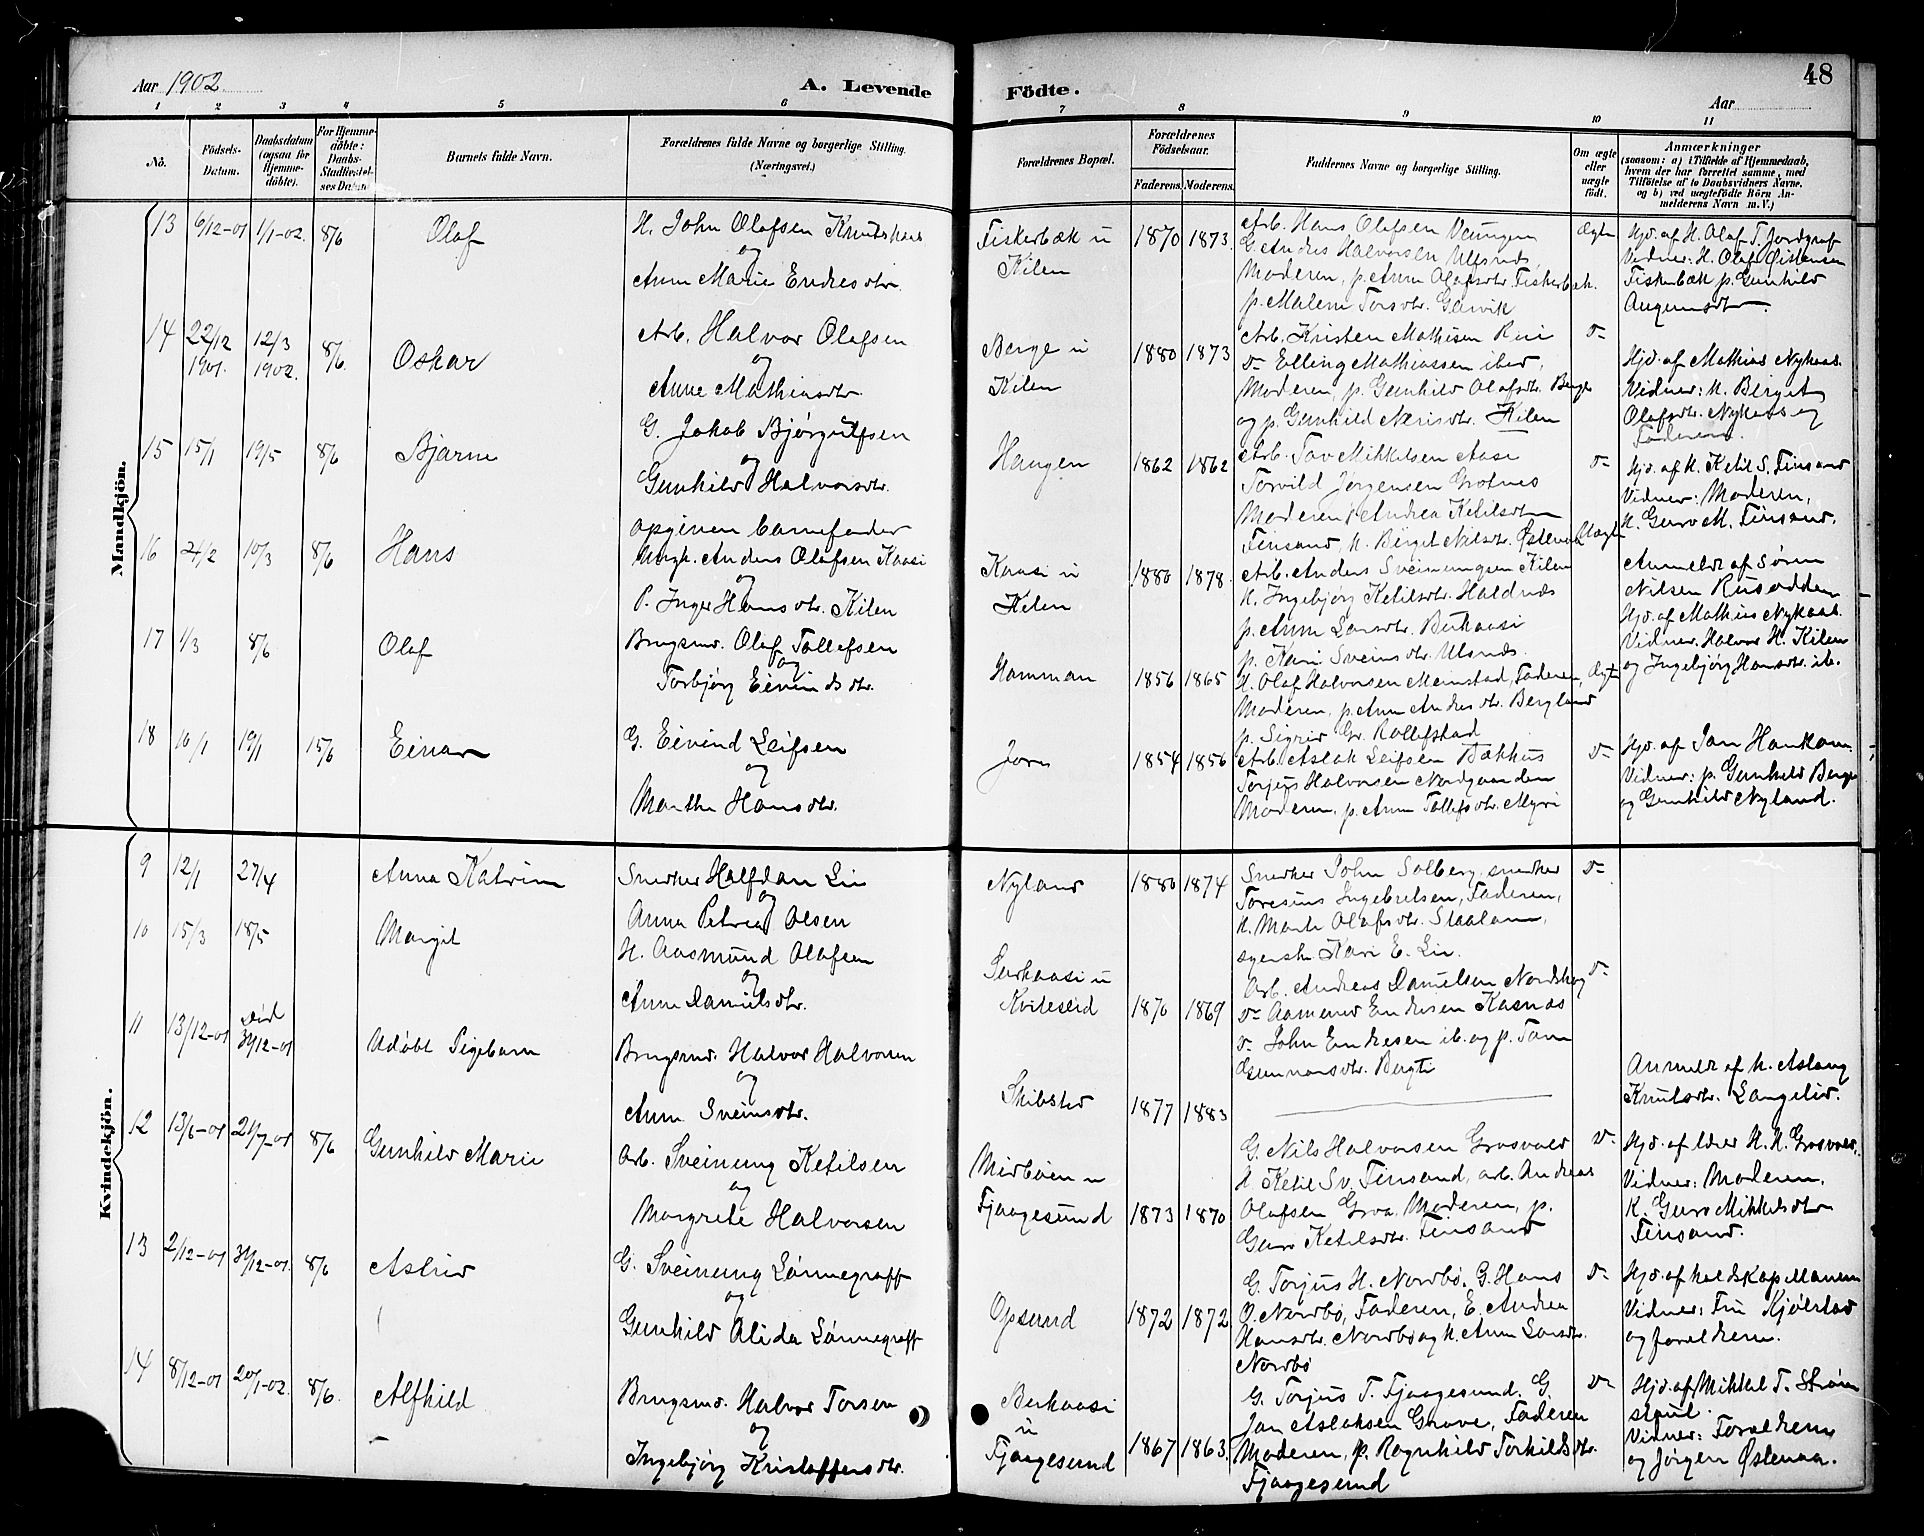 Aar 1902.
A. Levende
Födte.
48
Aar
1 2 3 4 5 6 7 8 9 10 11
No.
Födsels-
Datum.
Daabsdatum
(ogsaa for
Hjemme-
döbte).
For Hjemme-
döbte:
Daabs-
Stadfæstel-
ses Datum
Barnets fulde Navn.
Forældrenes fulde Navne og borgerlige Stilling.
(Næringsvei.)
Forældrenes Bopæl.
Forældrenes
Födselsaar.
Faderens. Moderens.
Faddernes Navne og borgerlige Stilling.
Om ægte
eller
uægte
födt.
Anmærkninger
(saasom: a) i Tilfælde af Hjemmedaab,
hvem der har forrettet samme, med
Tilföielse af to Daabsvidners Navne.
og b) ved uægtefödte Börn An-
melderens Navn m. V.)
Mandkjön.
13 6/12-01 1/1-02. 8/6 Olaf
H. John Olafsen Knutshaas
og
Anne Marie Endresdtr.
Fiskerbæk u
Kilen
1870 1873.
Arb. Hans Olafsen Veungen
G. Andres Halvorsen Ulsnæs,
Moderen, p. Ann Olafsdtr. Fiskerbæk.
p. Malene Torsdtr. Garvik
Ægte
Hjd. af H. Olaf T. Jordgraf
Vidner: H. Olaf Østensen
Fiskerbæk p. Gunhild
Augunsdtr.
14 22/12 1901. 12/3 1902. 8/6. Oskar
Arb. Halvor Olafsen
og
Anne Mathiasdtr.
Berge u
Kilen
1880 1873
Arb. Kristen Mathisen Rui
d- Elling Mathiassen ibid,
Moderen, p. Gunhild Olafsdtr. Berge
og p. Gunhild Nerisdtr. Kilen
d-
Hjd. af Mathias Nykaas.
Vidner: K. Berget
Olafsdtr. Nykaas og
Faderen.
15 15/1 19/5 8/6 Bjarne
G. Jakob Bjørgulfsen
og
Gunhild Halvorsdtr.
Haugen
1862 1862
Arb. Tov Mikkelsen Aase
Torvild Jørgensen Grotnes
Moderen, Andrea Ketilsdtr
Finsand, K. Birget Nilsdtr. Østenaa
d-
Hjd. af K. Ketil S. Finsand
Vidner: Moderen,
K. Guro M. Finsand.
16 24/2 10/3 8/6 Hans
opgiven barnefader
Ungk. Anders Olafsen Kaasi
og
P. Inger Hansdtr. Kilen
Kaasi u
Kilen
1880 1878.
Arb. Anders Sveinungsen Kilen
K. Ingebjørg Ketilsdtr. Haldnæs
p. Anne Larsdtr. Berkaasi
p. Kari Sveinsdtr. Ulsnæs.
Uægte
Anmeldt af Søren
Nilsen Rusodden
Hjd. af Mathias Nykaas.
Vidner. Halvor H. Kilen
og Ingebjørg Hansdtr. ib.
17 1/3 8/6 Olaf
Brugsmd. Olaf Tollefsen
og
Torbjørg Eivindsdtr.
Hamman
1856 1865
H. Olaf Halvorsen Meinstad, Faderen,
Moderen, p. Ann Andresdtr. Bergland
p. Sigrid Gr. Rollefstad
Ægte
18 10/1 19/1 15/6 Einar
G. Eivind Leifsen
og
Marthe Hansdtr.
Jore
1854 1856
Arb. Aslak Leifsen Bakhus
Torjus Halvorsen Nordgaarden
Moderen, p. Ann Tollefsdtr. Myri
d-
Hjd. af Jan Haukom.
Vidner: p. Gunhild Berge
og Gunhild Nyland.
Kvindekjön.
9 12/1 27/4 Anna Katrine
Snedker Halfdan Lie
og
Anna Petrea Olsen
Nyland
1880 1874
Snedker John Solberg, snedker
Toresius Ingebretsen, Faderen,
K. Marte Olafsdtr. Staalane,
syerske Kari E. Lie.
d-
10 15/3 18/5 Margit
H. Aasmund Olafsen
og
Anne Danielsdtr.
Surkaasi u
Kviteseid
1870 1869
Arb. Andreas Danielsen Nordskog
d- Aamund Endresen Kasnæs
d- John Endresen ib. og p. Tone
Gunnarsdtr. Bergte
d-
11 13/12-01 død 31/12-01 Udøbt Pigebarn
Brugsmd. Halvor Halvorsen
og
Anne Sveinsdtr.
Skibsted
1877 1883
Anmeldt af K. Aslaug
Knutsdtr. Langelid.
12 13/6-01 21/7-01 8/6 Gunhild Marie
Arb. Sveinung Ketilsen
og
Margrete Halvorsen
Midbøen u
Fjaagesund
1873 1870
G. Nils Halvorsen Grosvold
K Ketil Sv. Finsand, arb. Andreas
Olafsen Groa, Moderen, p.
Guro Ketilsdtr. Finsand
d-
Hjd. af lærer H. H. Grosvold.
Vidner: Moderen,
K. Guro Mikkelsdtr
Finsand.
13 2/12-01 31/12-01. 8/6 Astrid
G. Sveinung Lønnegraff
og
Gunhild Alida Lønnegraff
Opsund
1872 1872
G. Torjus H. Nordbø. G. Hans
O. Nordbø, Faderen, E. Andrea
Hansdtr. Nordbø og K. Ann Larsdtr.
Nordbø
d-
Hjd. af holdskap Manum
Vidner: Fru Kjølstad
og foreldrene.
14 8/12-01 20/1-02. 8/6. Alfhild
Brugsmd. Halvor Torsen
og
Ingebjørg Kristoffersdtr.
Berkaasi
u
Fjaagesund
1867 1863.
G. Torjus T. Fjaagesund. G.
Jan Aslaksen Grave, Faderen
Moderen, p. Ragnhild Torkildsdtr.
Fjaagesund
d-
Hjd. af Mikkel T. Strøm
stout.
Vidner: Foreldrene
og Jørgen Østenaa.